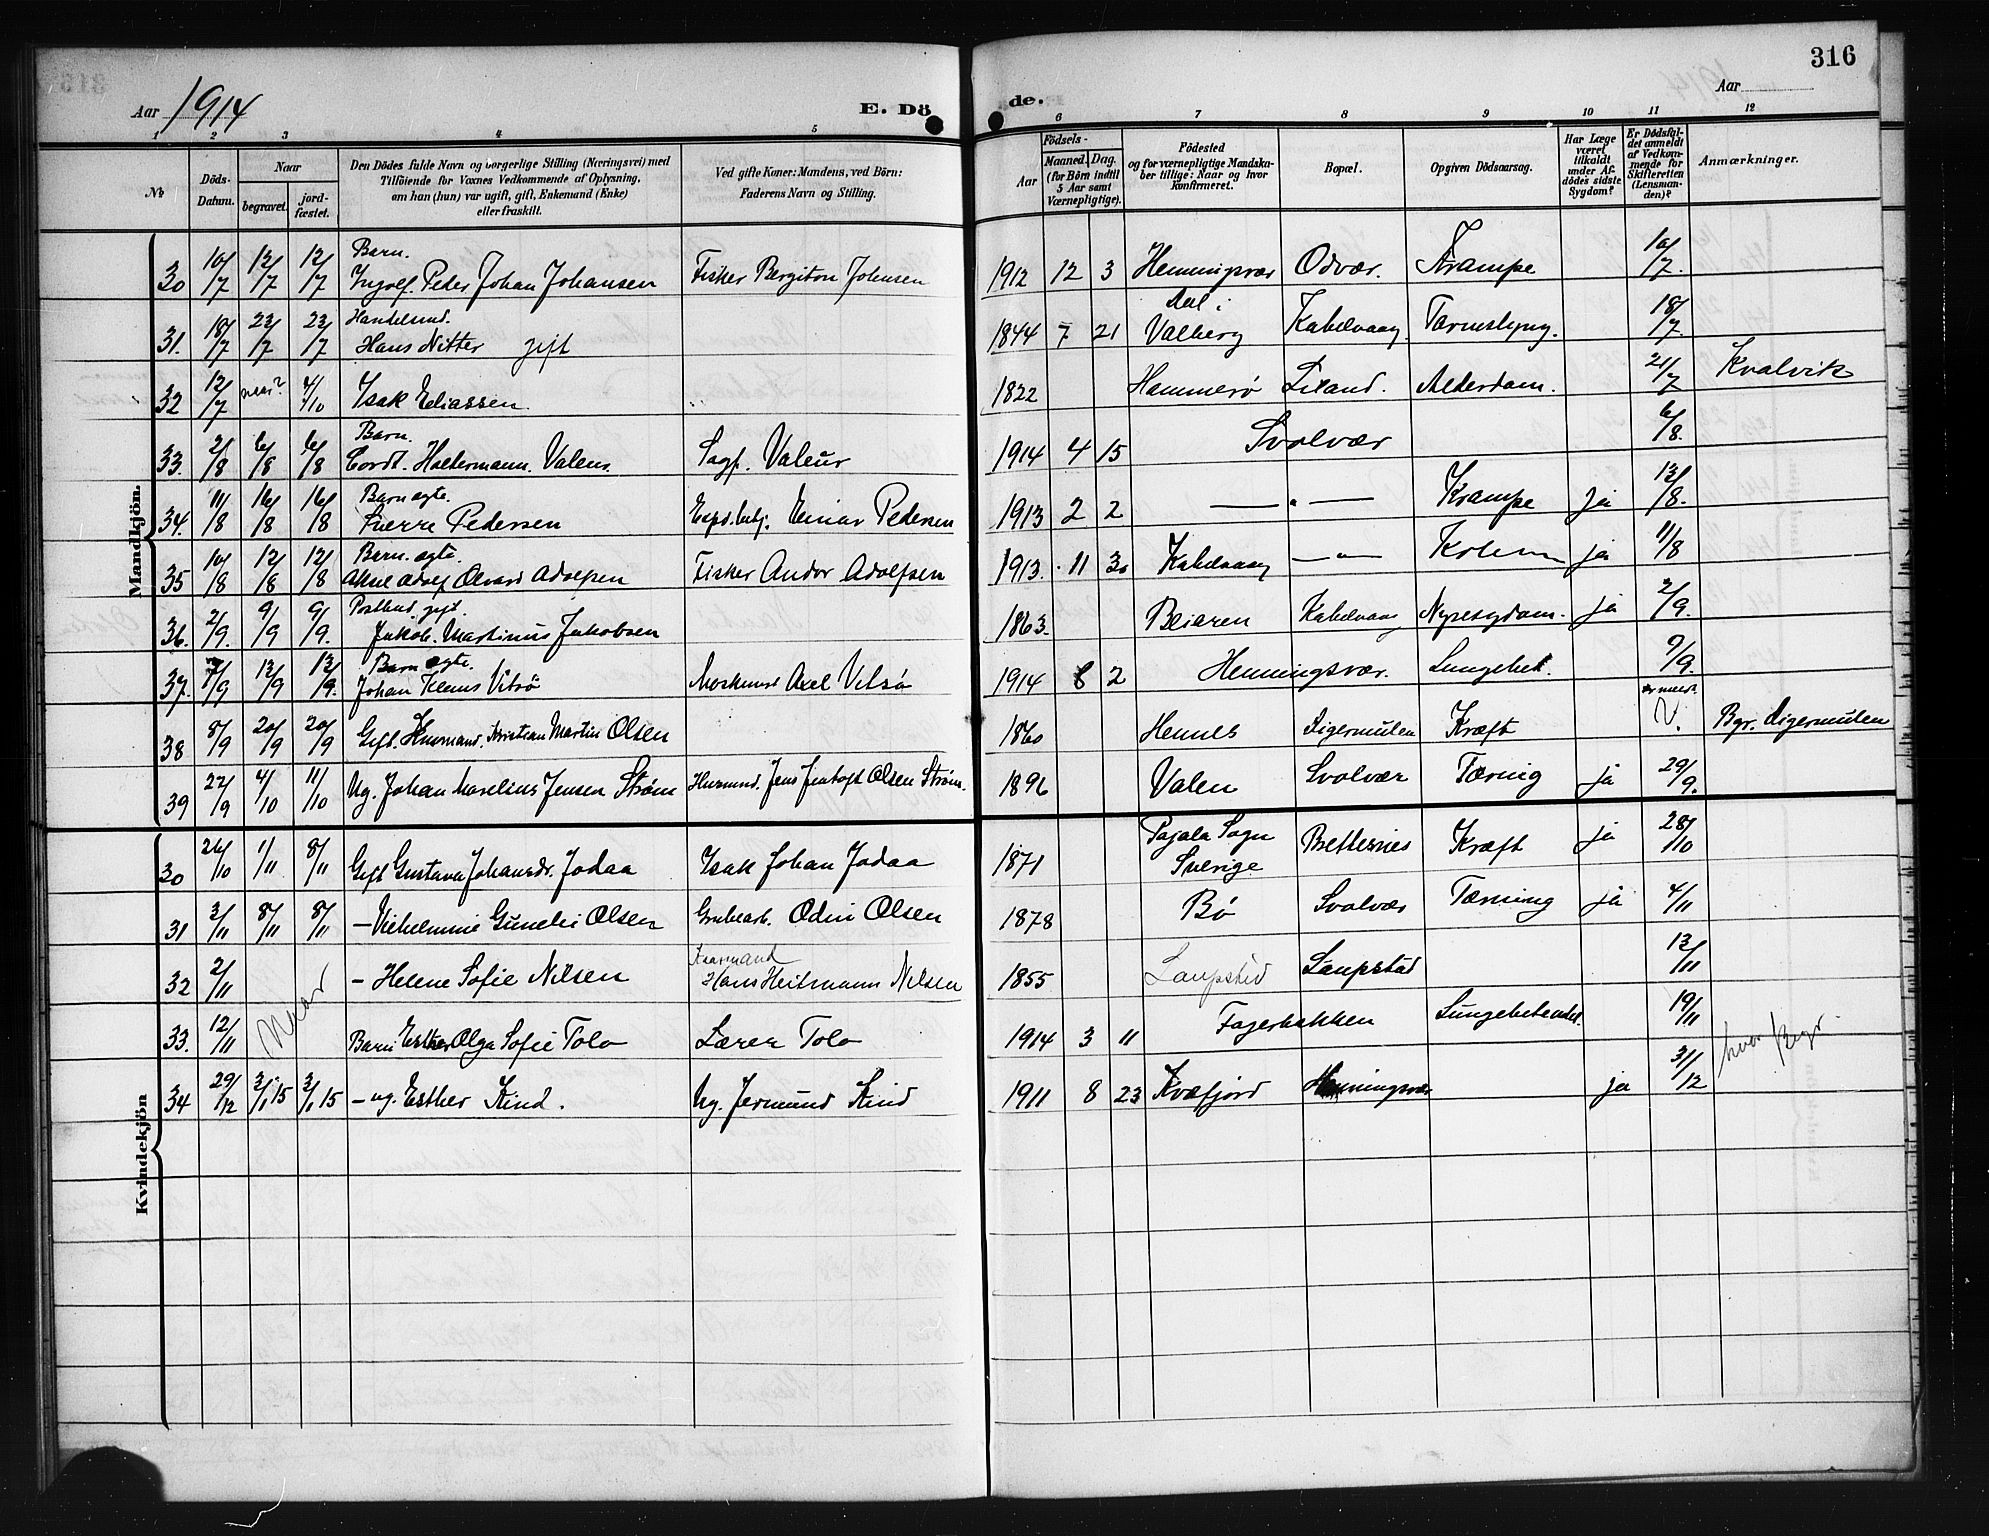 316
Aar 1914 E. Döde. Aar
1 2 3 4 5 6 7 8 9 10 11 12
No
Döds-Datum.
Naar
begravet.
jordfæstet.
Den Dödes fulde Navn og borgerlige Stilling (Næringsvei) med
Tilföiende for Voxnes Vedkommende af Oplysning,
om han (hun) var ugift, gift, Enkemand (Enke)
eller fraskilt.
Ved gifte Koner: Mandens, ved Börn:
Faderens Navn og Stilling.
Födsels-
Aar
Maaned. Dag.
(for Börn indtil
5 Aar samt
Værnepligtige).
Födested
og for værnepligtige Mandska-
ber tillige: Naar og hvor
Konfirmeret.
Bopæl.
Opgiven Dödsaarsag.
Har Læge
været
tilkaldt
under Af-
dödes sidste
Sygdom?
Er Dödsfal-
det anmeldt
af Vedkom-
mende for
Skifteretten
(Lensman-
den)?
Anmærkninger.
Mandkjön.
30 10/7 12/7 12/7 Barn. Ingolf Peder Johan Johansen Fisker Bergiton Johnsen 1912 12 3 Henningsvær Odvær. Krampe 10/7.
31. 18/7 23/7 23/7 Handelsmd. Hans Nitter gift 1844 7 21 Aal i Valberg Kabelvaag Tarmslyng. 18/7.
32 12/7 naar? 4/10 Isak Eliassen. 1822 Hammerø Liland. Alderdom. 21/7 Kvalvik
33. 2/8 6/8 6/8 Barn. Cordt. Holtermann. Valeur. Sagf. Valeur 1914 4 15 Svolvær 6/8.
34. 11/8 16/8 16/8 Barn ægte. Sverre Pedersen Exp.betj. Einar Pedersen 1913 2 2 — " — Krampe ja 12/8.
35 10/8 12/8 12/8 Barn. ægte. Aksel Adolf Edvard Adolfsen Fisker Andor Adolfsen 1913. 11 30 Kabelvaag — " — ja 11/8
36. 2/9. 9/9 9/9. Postbud gift. Jakob. Martinus Jakobsen 1863. Beiaren Kabelvaag Nyresygdom. ja 2/9.
37. 7/9 12/9 12/9. Barn ægte. Johan Klaus Vilsø Axel Vilsø 1914 8 2 Henningsvær. Lungebet. 9/9.
38 8/9 20/9 20/9 Gift. Husmand. Kristian Martin Olsen 1860 Hennes Digermulen Kræft Bgr. Digermulen
39 22/9 4/10 11/10 Ug. Johan Marelius Jensen Strøm Husmand. Jens Jentoft Olsen Strøm. 1896 Valen Svolvær Tæring ja 29/9.
Kvindekjön
30 26/10 1/11 8/11 Gift Gustava Johansdr. Jodaa Isak Johan Jodaa 1871 Pajala Sogn Sverige Brettesnes Kræft ja 28/10
31 3/11 8/11 8/11 — Vilhelmine Gunelie Olsen Grubearb. Odin Olsen 1878 Bø Svolvær Tæring ja 4/11
32 2/11 naar — Helene Sofie Nilsen Kaarmand Hans Heitmann Nilsen 1855 Laupstad Laupstad 13/11
33. 12/11 Barn Esther Olga Sofie Tolo Lærer Tolo 1914 3 11 Fagerbakken Lungebetændel. 19/11 hvor begr.
34 29/12 3/1 15 3/1 15 — ug. Esther Kind. Ug. Jermund Kind 1911 8 23 Kvæfjord Henningsvær ja 31/12